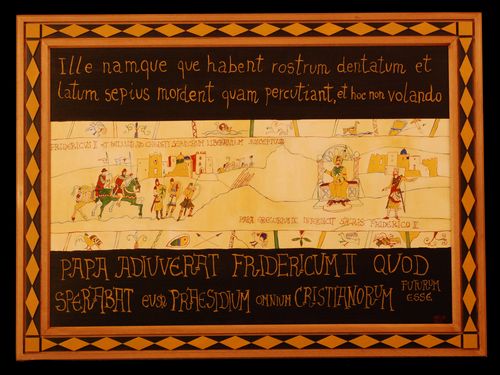 Ille namque que habent rostrum dentatum et
latum sepius mordent quam percutiant, et hoc non volando
FRIDERICUS II ET BELLUM
PAPA INTERDICIT FRIDERICO II
PAPA ADIUVERAT FRIDERICUM II QUOD
SPERABAT EUM PRAESIDIUM OMNIUM CRISTIANORUM FUTURUM
ESSE